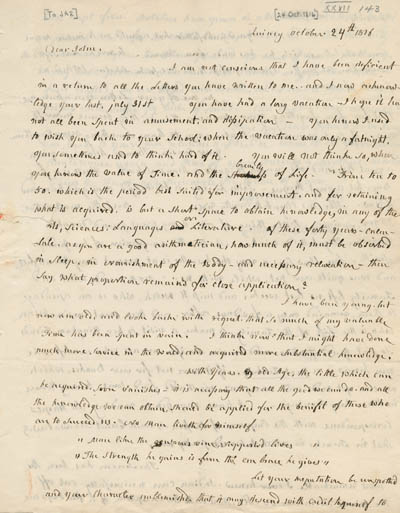 [To JA2] [24 Oct 1816] XXXII 143
Quincy October 24th 1816
Dear John.
I am not conscious that I have been deficient
in a return to all the Letters you have written to me. and I now acknow
ledge your last, july 31st you have had a long vacation I hope it has
not all been spent in amusement, and dissipation — you know I used
to wish you back to your School; when the vacation was only a fortnight.
you sometimes used to think hard of it. you will not think so, when
you know the value of Time. and the brevity of Life. From ten to
50. which is the period best Suited for improvement. and for retaining
what is acquired. is but a short space to obtain knowledge, in any of the
Arts, Sciences; Languages or Literature. of these forty years—calcu
late. as you are a good arithmetician, how much of it, must be absorbed
in Sleep. in nourishment of the Body—and necessary relaxation— then
Say what proportion remains for close application?
I have been young. but
now am old, and look back with regret that so much of my valuable
Time has been spent in vain. I think now that I might have done
much more Service in the World, and acquired more substantial knowledge.
with years. and old Age, the little which can
be acquired. Soon vanishes— it is necessary that all the good we can do. and all
the knowledge we can attain. should be applied for the benefit of those who
are to succeed us. no Man liveth for himself.
"Man like the generous vine supported lives
"The Strength he gains is from the embrace he gives"
Let your reputation be unspotted
and your Character unblemished that it may descend with credit to yourself to